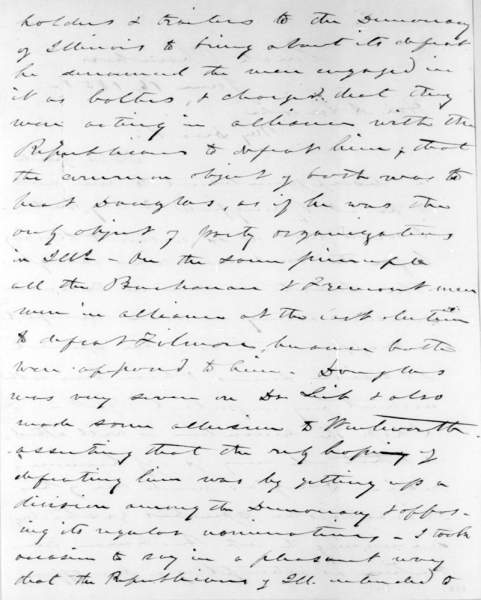 holders & traitors to the Democracy
of Illinois to bring about its defeat
he denounced the men engaged in
it as bolters, & charged that they
were acting in alliance with the
Republicans to defeat him, & that
the common object of both was to
beat Douglas, as if he was the
only object of party organization
in Ill. — On the same principle
all the Buchanan & Fremont men
were in alliance at the last election
to defeat Filmore, because both
were opposed to him. Douglas
was very severe on Dr Lieb & also
made some allusion to Wentworth
asserting that the rep hoping of
defeating him was by getting up a
division among the Democracy & oppos-
ing its regular nominations, — I took
occasion to say in a pleasant way
that the Republicans of Ill. intended to